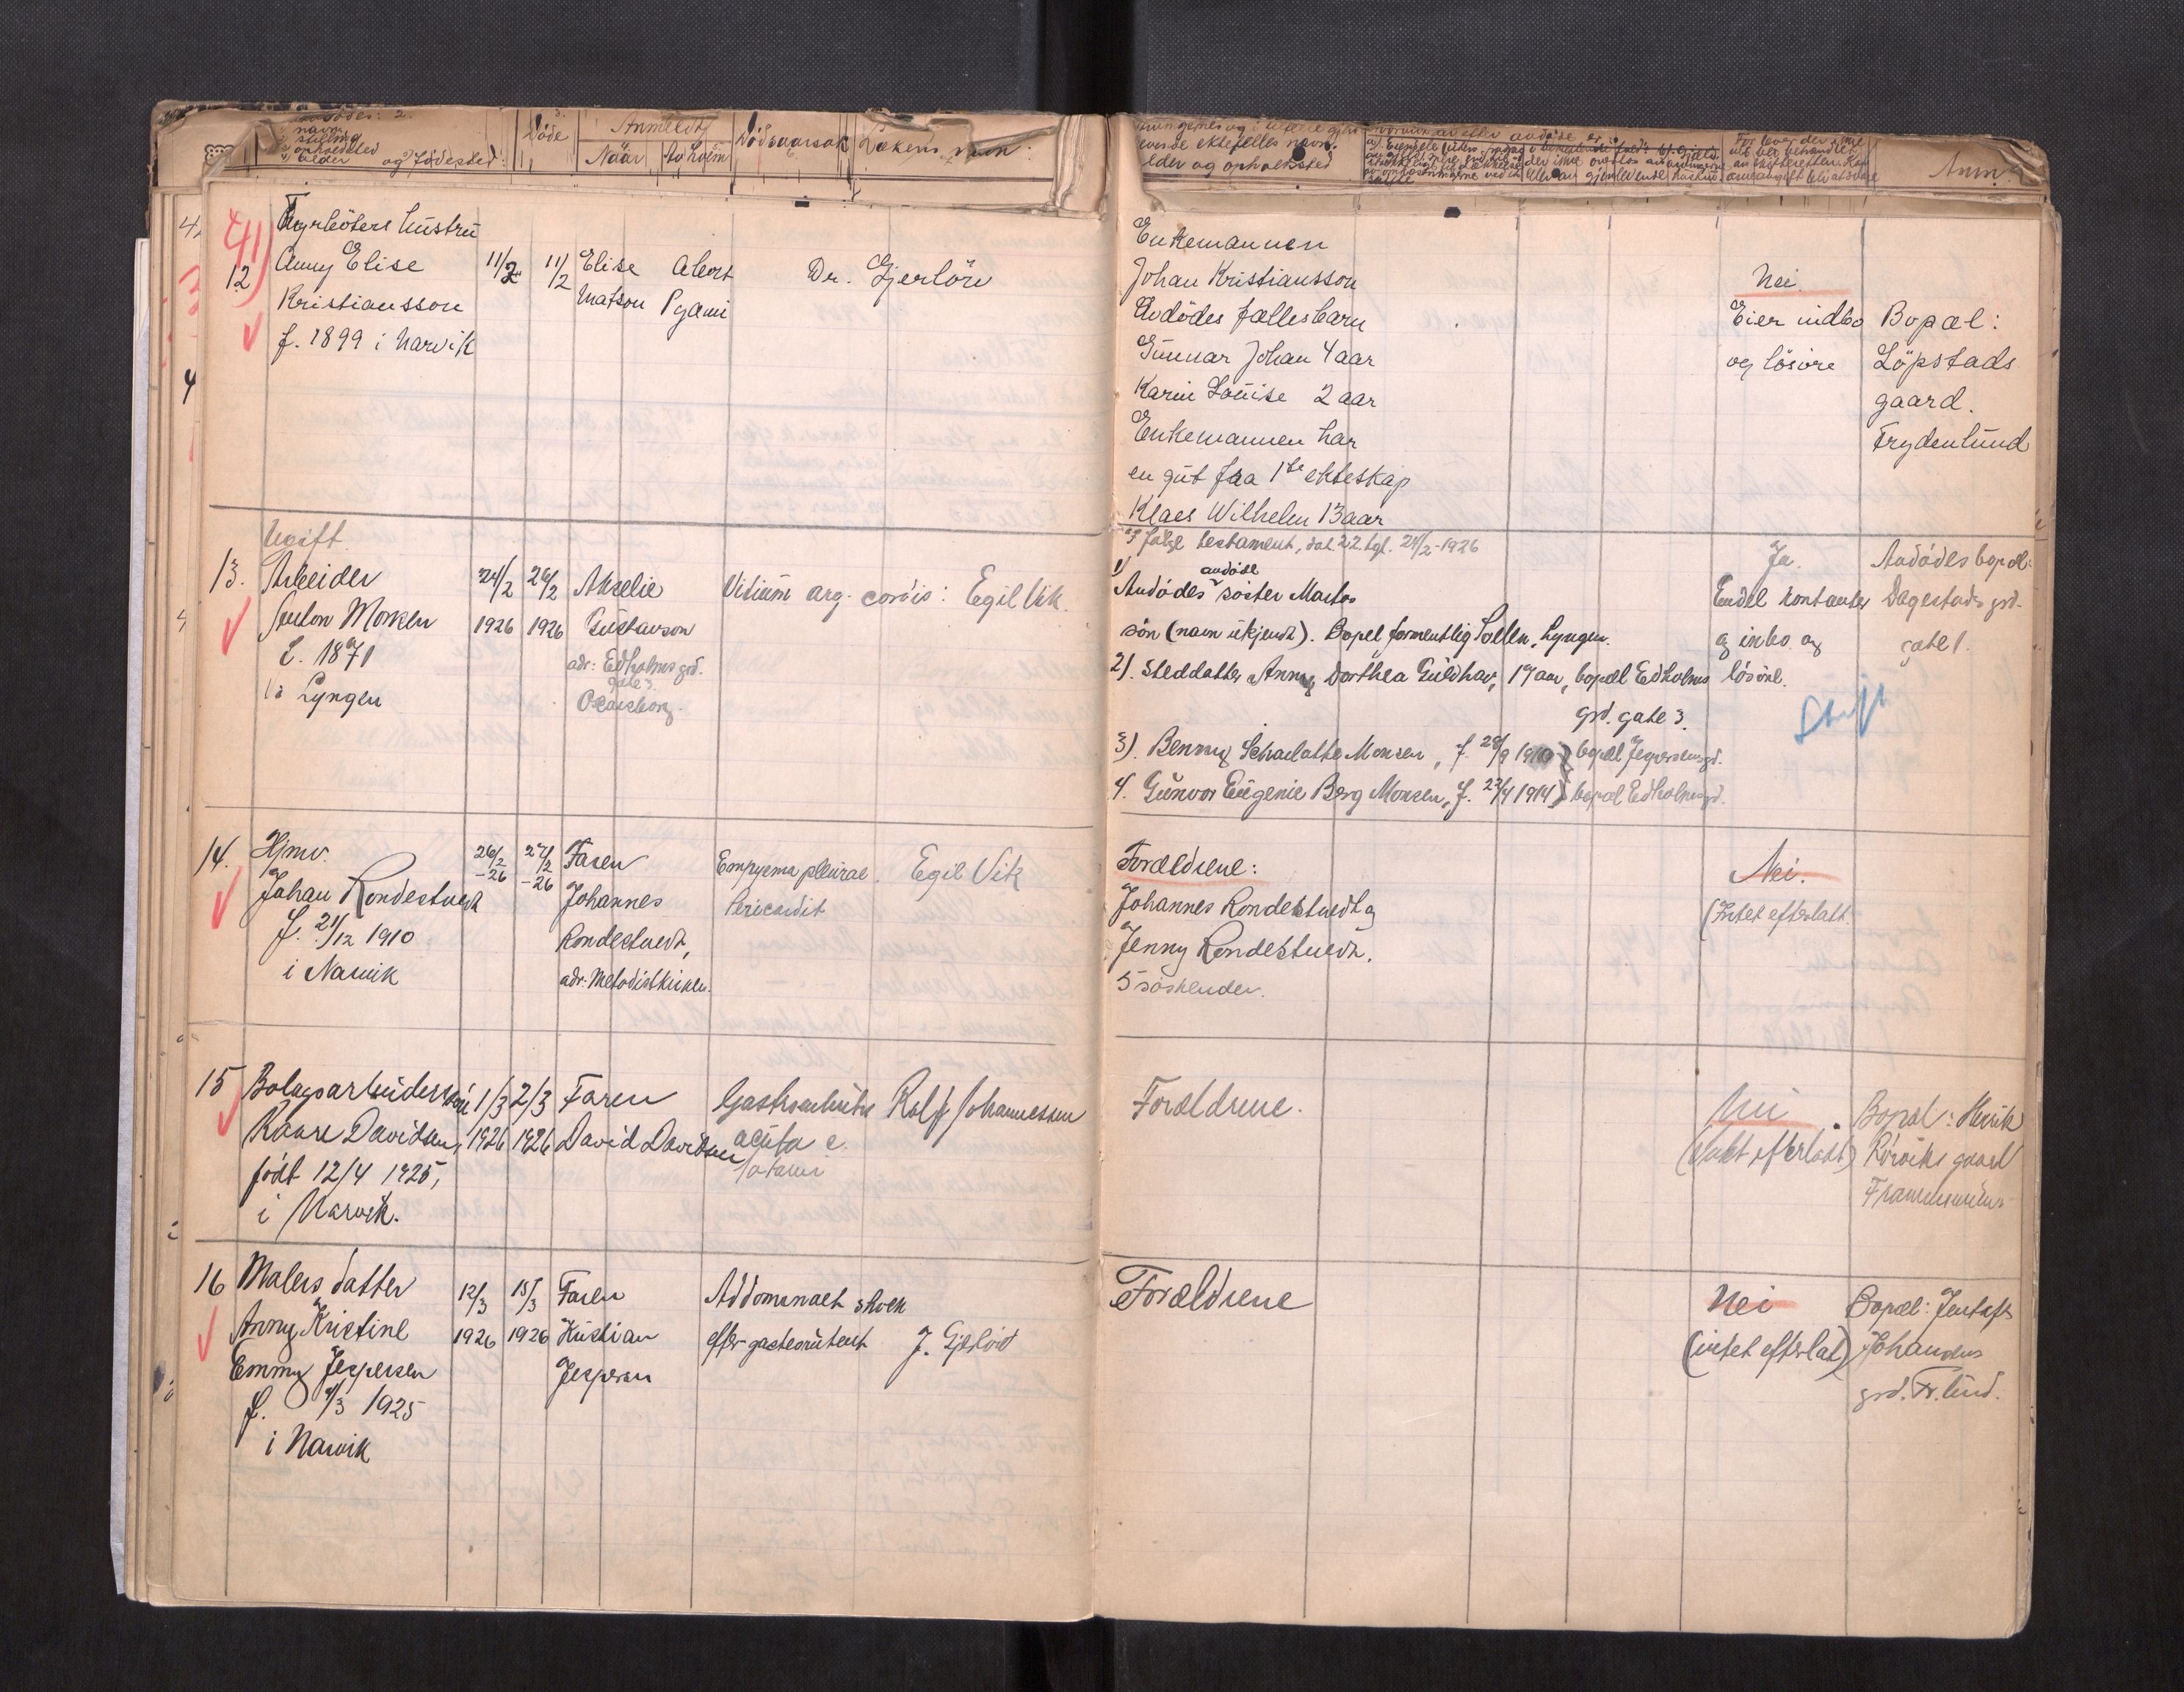 navn
stilling
opholdssted
alder og fødested:
Døde
Anmeldt
Naar
Av hvem
Dödsaarsak
Lækens navn
evende ektefelles navn,
alder og opholdssted
Anm.
41)
12
Fyrböters hüstrü
Anny Elise
Kristiansson
f. 1899 i Narvik
11/2
11/2
Elise
Matson
Abort
Pyæmi
Dr. Gjerlöw
Enkemannen
Johan Kristiansson
Avdödes fællesbarn
Günnar Johan 4 aar
Karin Loüise 2 aar
Enkemannen har
en güt fra 1ste ekteskap
Klaes Wilhelm 13 aar
Nei.
Eier indbo
og lösöre
Bopæl:
Löpstads
gaard.
Frydenlünd
Ugift
13.
Arbeider
Morken
f. 1871
i Lyngen
24/2
1926
26/2
1926
Güstavson
adr: Edholms grd.
gate 3.
Oscarsborg.
Vitiüm org. cordis:
Egil Vik.
I følge testament, dat. 22. tgl. 24/2-1926
1)
avdöde
Avdödes söster Martas
sön (navn ükjendt). Bopel formentlig Lyngen.
2). Steddatter Anny Dorthea Güldhav, 17 aar, bopæl Edholms
grd. gate 3.
3). Benny Scharlotte Monsen, f. 28/9 1910 } bopæl Jespersens grd.
4. Günvor Eügenie Berg Monsen, f. 23/4 1914 } bopæl Edholms grd.
Ja.
Endel kontanter
og inbo og
lösöre.
Skift
Avdödes bopæl:
Dagestads grd.
gate 1.
14.
Hjmv.
Johan Rondestvedt
f. 21/12 1910
i Narvik
26/2
-26
27/2
-26
Faren
Johannes
Rondestvedt,
adr: Metodistkirken.
Empyema pleürae.
Pericardit
Egil Vik
Foreldrene:
Johannes Rondestvedt og
Jenny Rondestvedt.
5 söskender.
Nei.
(Intet efterlatt.
15
Bolagsarbeiders sön
Kaare Davidsen,
født 12/4 1925,
i Narvik.
1/3
1926
2/3
1926
Faren
David Davidsen
acüta c.
Rolf Johannessen
Forældrene.
Nei
(Intet efterlatt)
Bopæl: Henrik
Rörviks gaard
16
Malers datter
Anny Kristine
Emmy Jespersen
f. 4/3 1925
i Narvik
12/3
1926
15/3
1926
Faren
Kristian
Jespersen
Abdominalt shock
efter gasteroüterit
J. Gjerlöw
Forældrene
Nei
(intet efterlat)
Bopæl: Jentoft
Johansens
grd. Fr. lünd.